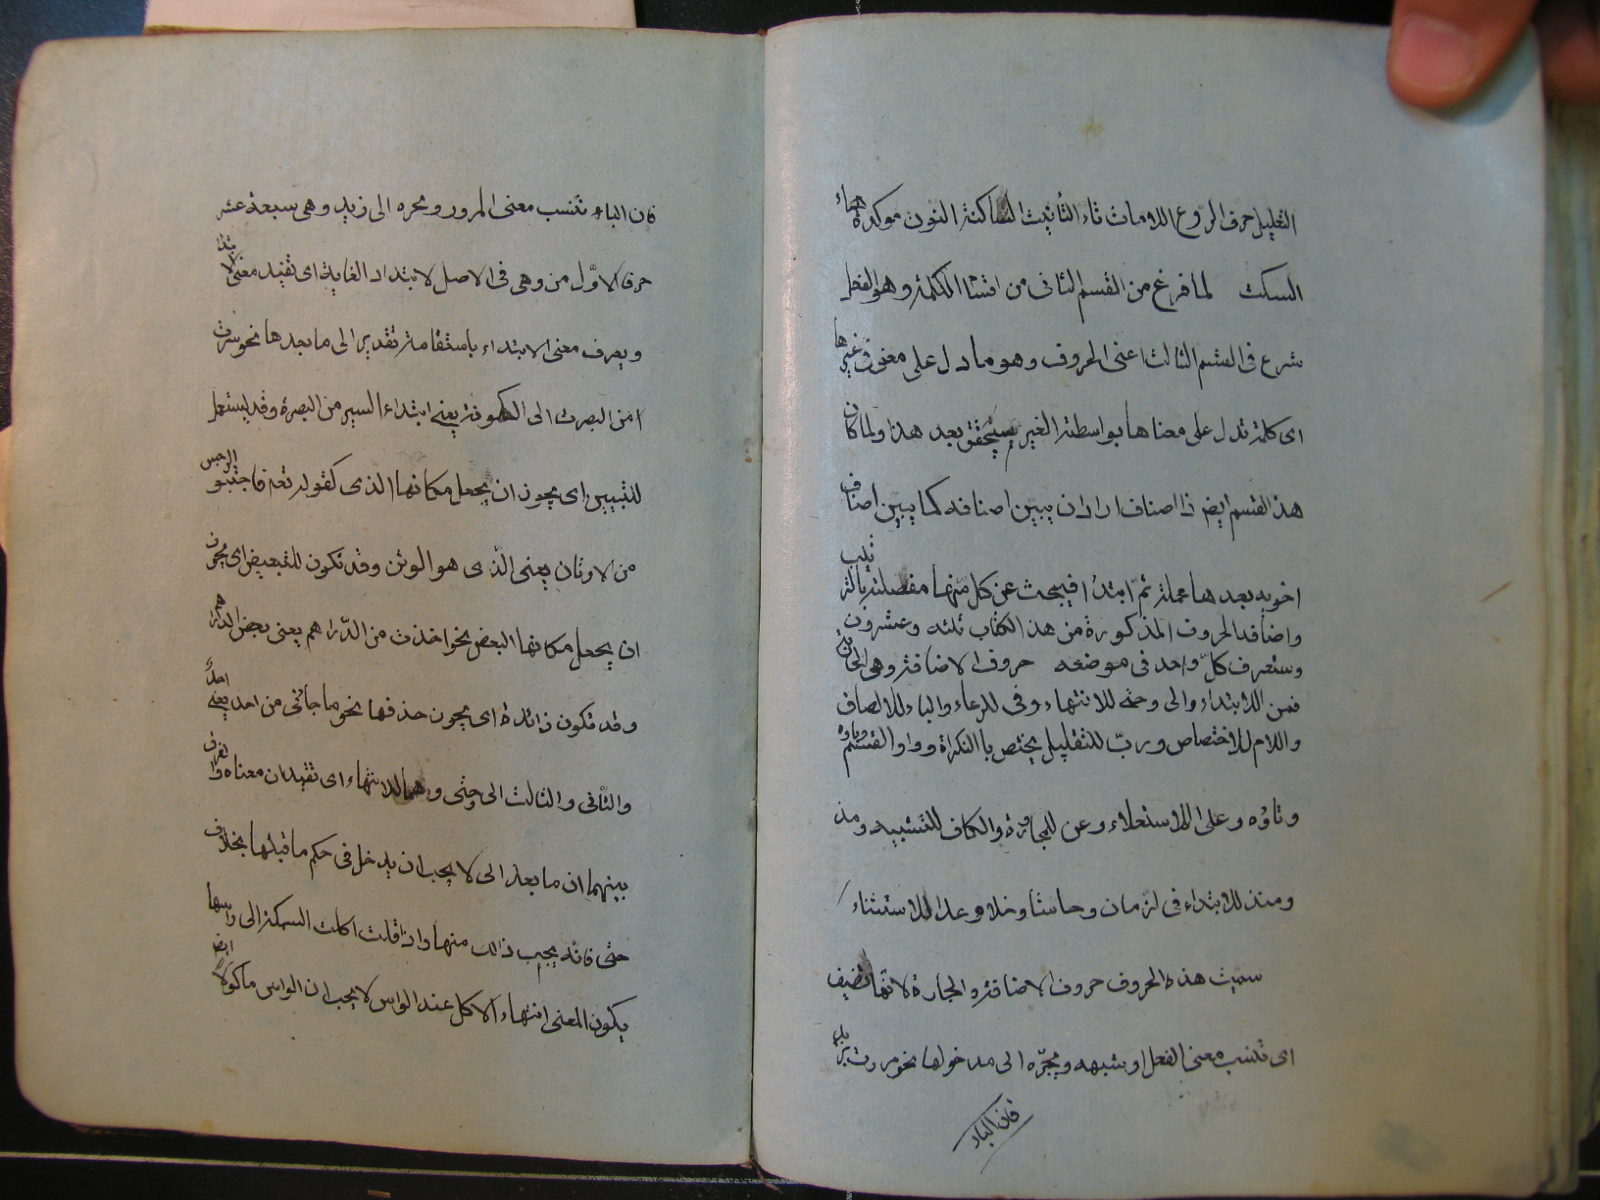 التعليل حرف الردع اللامات تاء التأنيث الساكنة النون موكدة هاء
السكت لما فرغ من القسم الثانى من اقسام الكلمة وهو الفعل
شرع فى القسم الثالث اعنى الحروف وهو ما دل على معنى فى غيرها
اى كلمة تدل على معناها بواسطة الغير سيتحقق بعد هذا ولما كان
هذا القسم ايض ذا اصناف اراد ان يبين اصنافه كما يبين اصناف
اخويه بعدها عملة ثم ابتدأ فيبحث عن كل منها مفصلة بالترتيب
واضاف الحروف المذكورة من هذا الكتاب ثلثه وعشرون
وستعرف كل واحد فى موضعه حروف الاضافة وهى الجارة
فمن للابتداء والى وحتى للانتهاء وفى للوعاء والباء للالصاف
واللام للاختصاص ورب للتقليل يختص باالنكرة وواو القسم وباوه
وتاؤه وعلى للاستعلاء وعن للمجاوزة والكاف للتشبيه ومذ
ومنذ للابتداء فى الزمان وحاشا وخلا وعدا للاستثناء
سميت هذه الحروف حروف الاضافة والجارة لانها تضيف
اى تنسب معنى الفعل او شبهه ويجرّه الى مدخولها نحو مررت بزيد
فان الباء
فان الباء تنسب معنى المرور ويجره الى زيد وهى سبعة عشر
حرفا الاوّل من وهى فى الاصل لابتداء الغاية اى تفيد معنى الابتداء
ويعرف معنى الابتداء باستقامة تقدير الى ما بعدها نحو سرت
من البصرت الى الكوفة يعنى ابتداء السير من البصرة وقد يستعمل
للتبيين اى يجوز ان يجعل مكانها الذى كقوله تعه فاجتنبو الرجس
من الاوثان يعنى الذى هو الوثن وقد تكون للتبعيض اى يجوز
ان يجعل مكانها البعض نحو اخذت من الدّراهم يعنى بعض الدراهم
وقد تكون زائدة اى يجوز حذفها نحو ما جائنى من احد يعنى احدٌ
والثّانى والثالث الى وحتى وهما للانتهاء اى تفيدان معناه والفرق
بينهما ان ما بعد الى لا يجب ان يدخل فى حكم ما قبلها بخلاف
حتى فانه يجب ذالك منها واذا قلت اكلت السمكة الى راسها
يكون المعنى انتهاء الاكل عند الراس لا يجب ان الراس ماكولاً ايضا